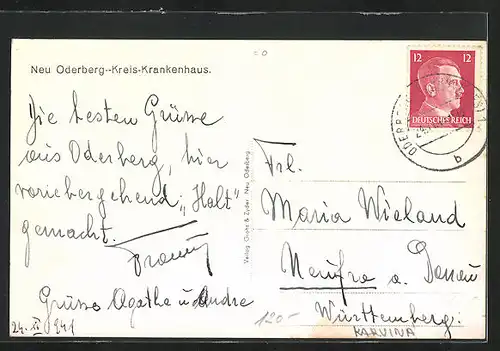 Neu Oderberg--Kreis-Krankenhaus.
Die besten Grüsse
aus Oderberg, hier
vorübergehend „Halt"
gemacht.
Grüsse Agathe u Andre
24. II 941
Verlag Grohs & Zyder, Neu Oderberg
12 12
DEUTSCHES REICH
ODERBERG
b
Frl.
Maria Wieland
Neufra a. Donau
Württemberg.
120-
KARVINA